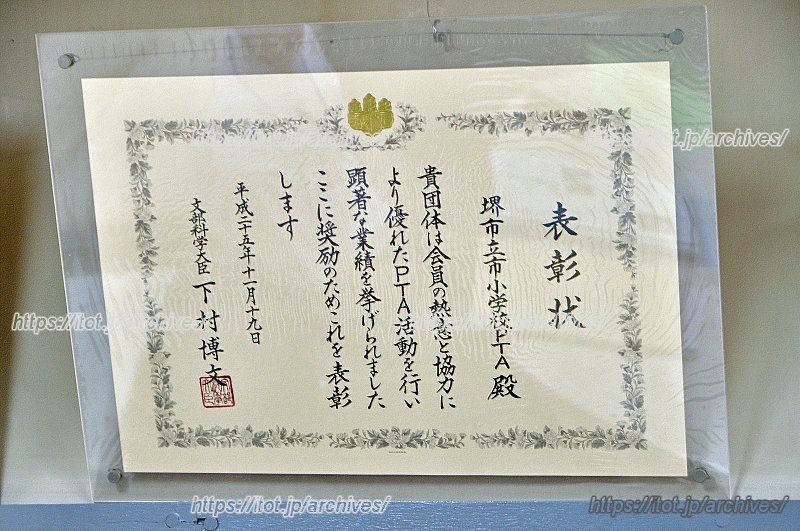 表彰状
堺市立市小学校PTA殿
貴団体は会員の熱意と協力に
より優れたPTA活動を行い
顕著な業績を挙げられました
ここに奨励のためこれを表彰
します
平成二十五年十一月十九日
文部科学大臣 下村博文
https://itot.jp/archives/
https://itot.jp/archives/
https://itot.jp/archives/
https://itot.jp/archives/
https://itot.jp/archives/
https://itot.jp/archives/